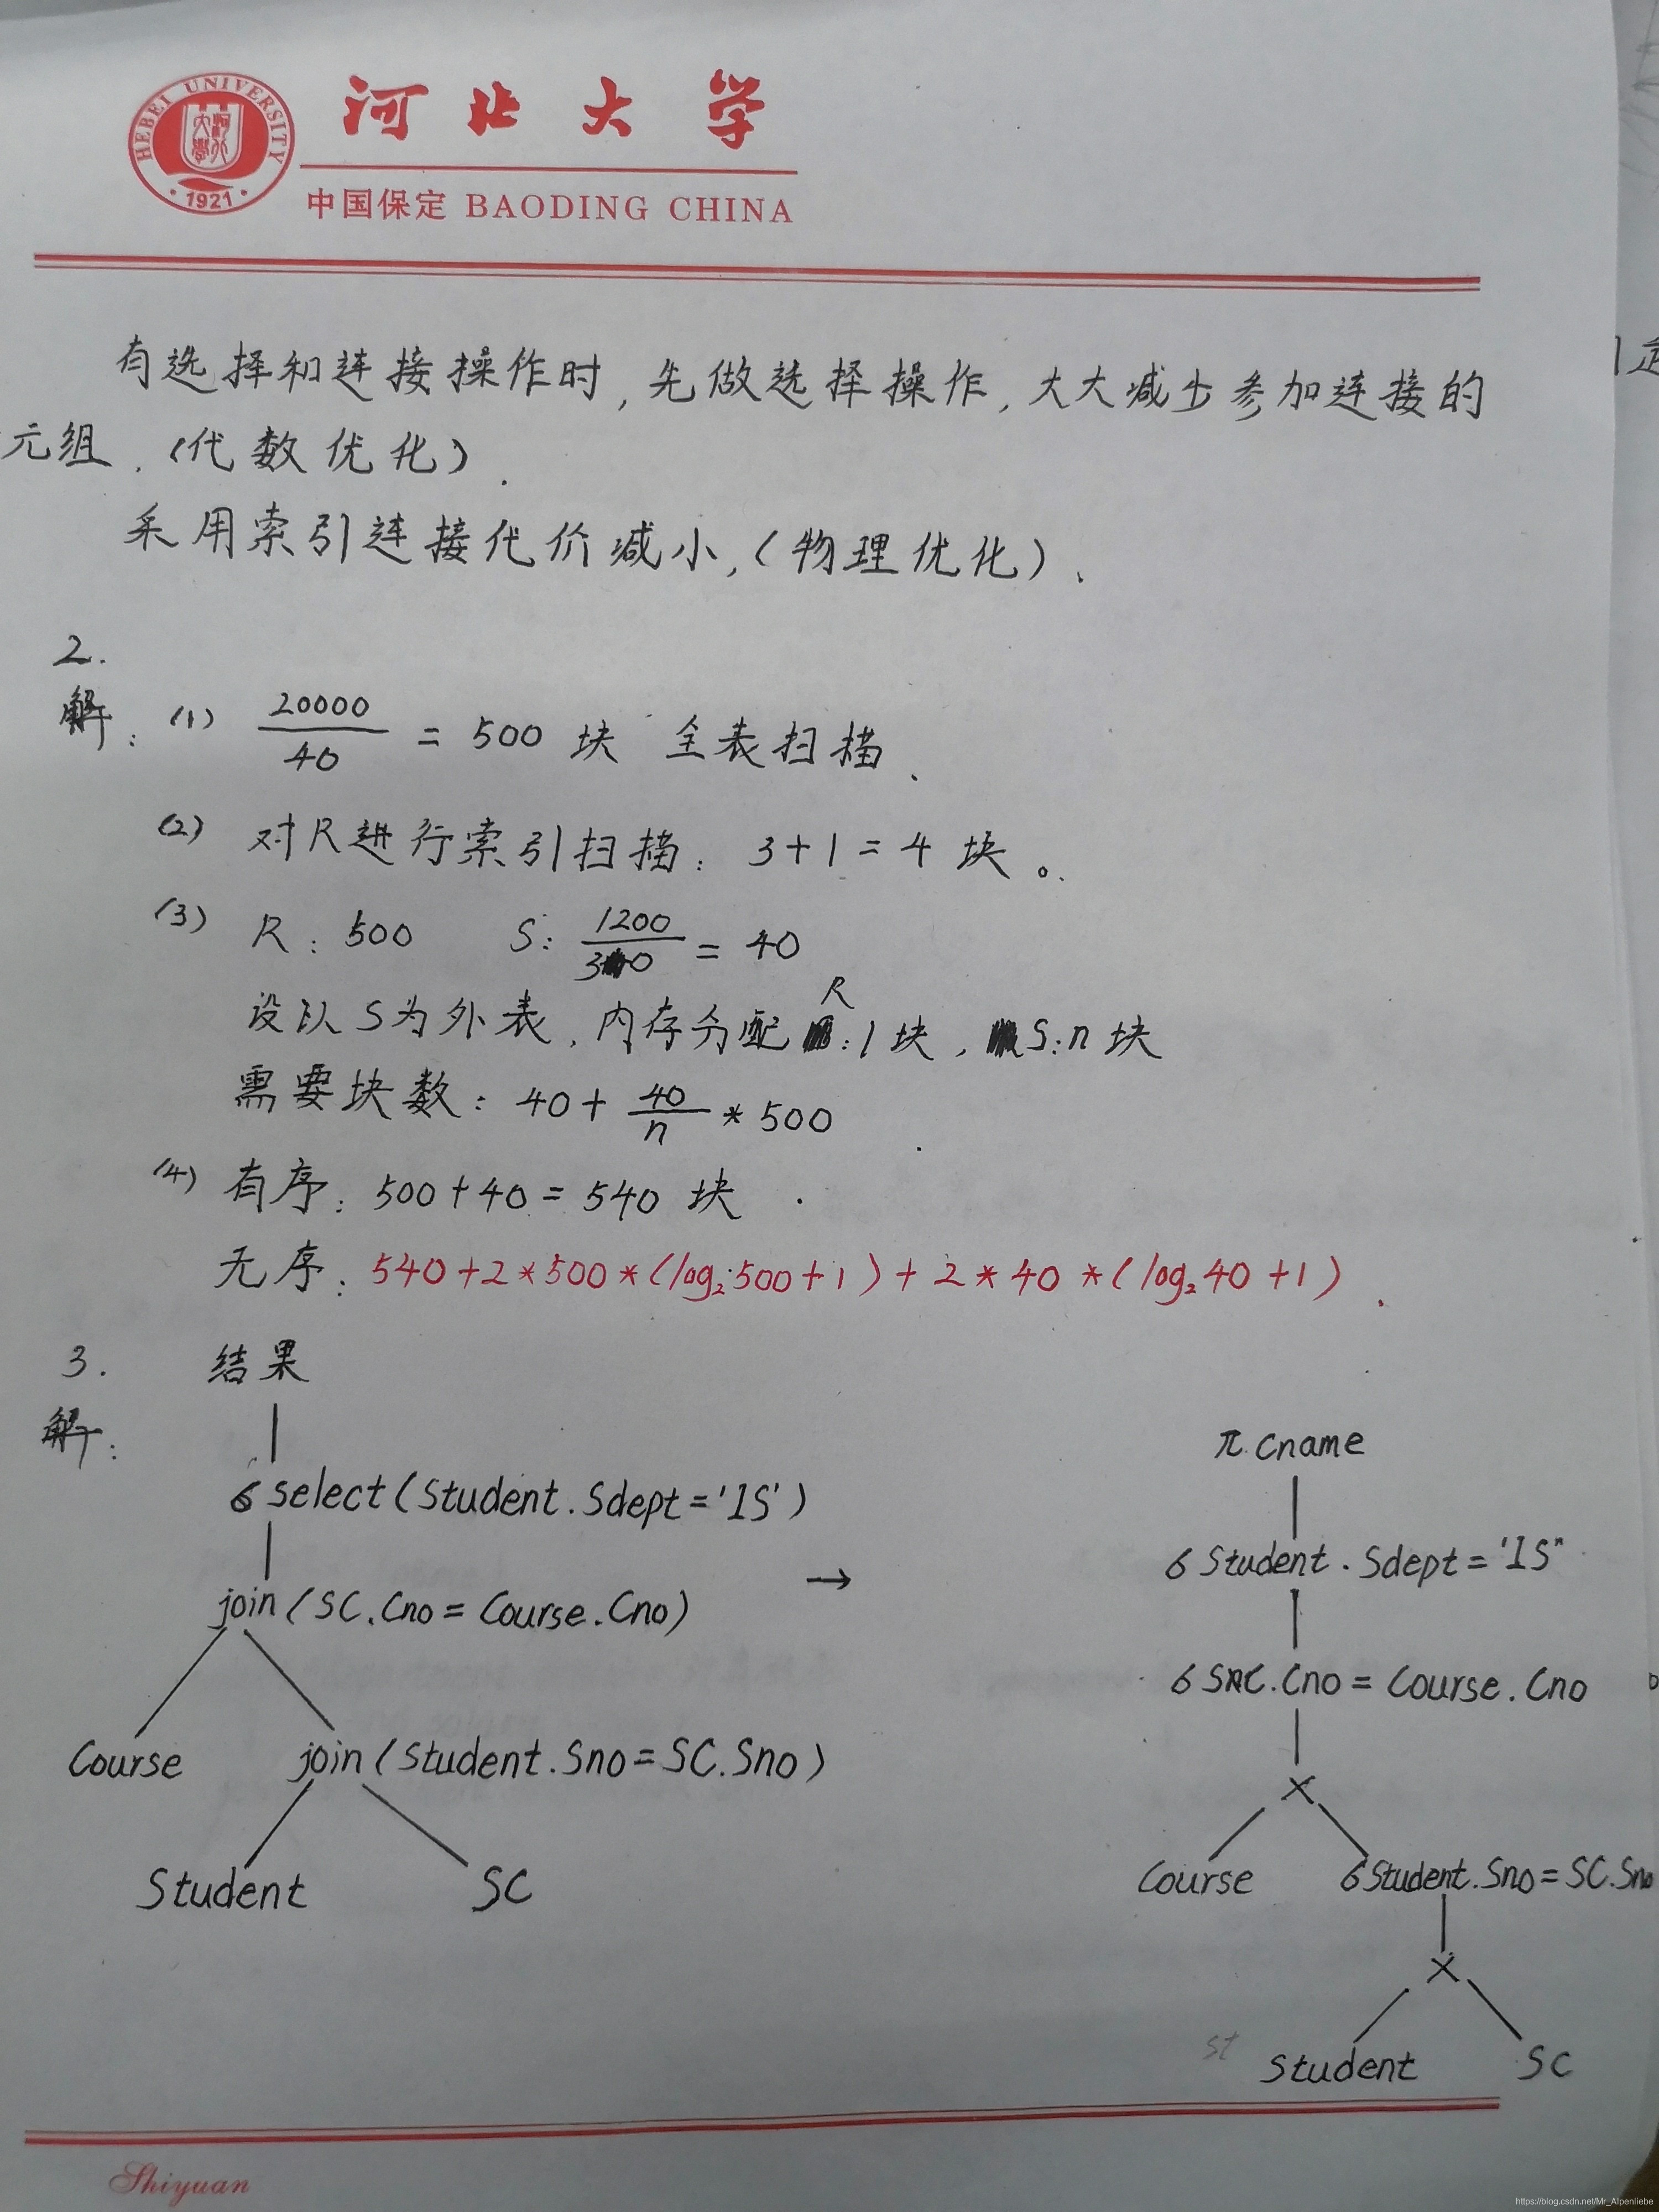 HEBEI UNIVERSITY
1921
河北大学
中国保定 BAODING CHINA
有选择和连接操作时,先做选择操作,大大减少参加连接的
元组.(代数优化).
采用索引连接代价减小,(物理优化).
2.
解: (1) 20000/40 = 500 块 全表扫描.
(2) 对R进行索引扫描: 3+1=4 块。
(3) R: 500 S: 1200/30 = 40
设以S为外表,内存分配R:1块,S:n块
需要块数: 40+ 40/n * 500
(4) 有序: 500+40=540 块.
无序: 540+2*500*(log₂500+1)+2*40*(log₂40+1).
3. 结果
解:
6 select(Student.Sdept='IS')
join(SC.Cno=Course.Cno)
Course join(Student.Sno=SC.Sno)
Student SC
→
π Cname
6 Student.Sdept='IS"
6 SC.Cno=Course.Cno
×
Course 6 Student.Sno=SC.Sno
×
st Student SC
Shiyuan
https://blog.csdn.net/Mr_Alpenliebe